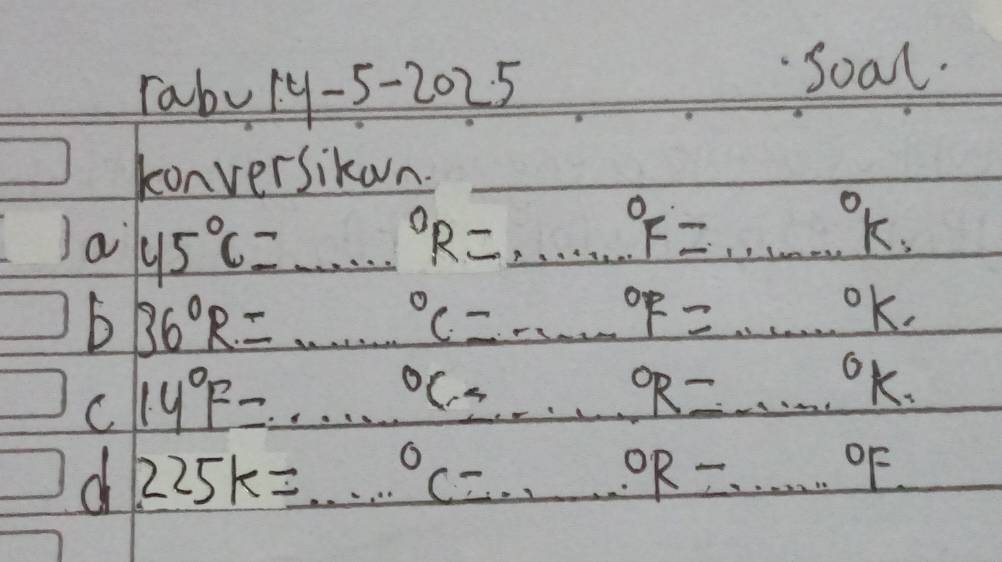 rabu 14-5-2025 Soal.
konversikan.
a 45°C = ....... °R = ......... °F = ......... °K.
b 36°R = ........ °C = ....... °F = ....... °K.
c 14°F = ........ °C = .......... °R = ....... °K.
d 225K = ...... °C = ......... °R = ....... °F